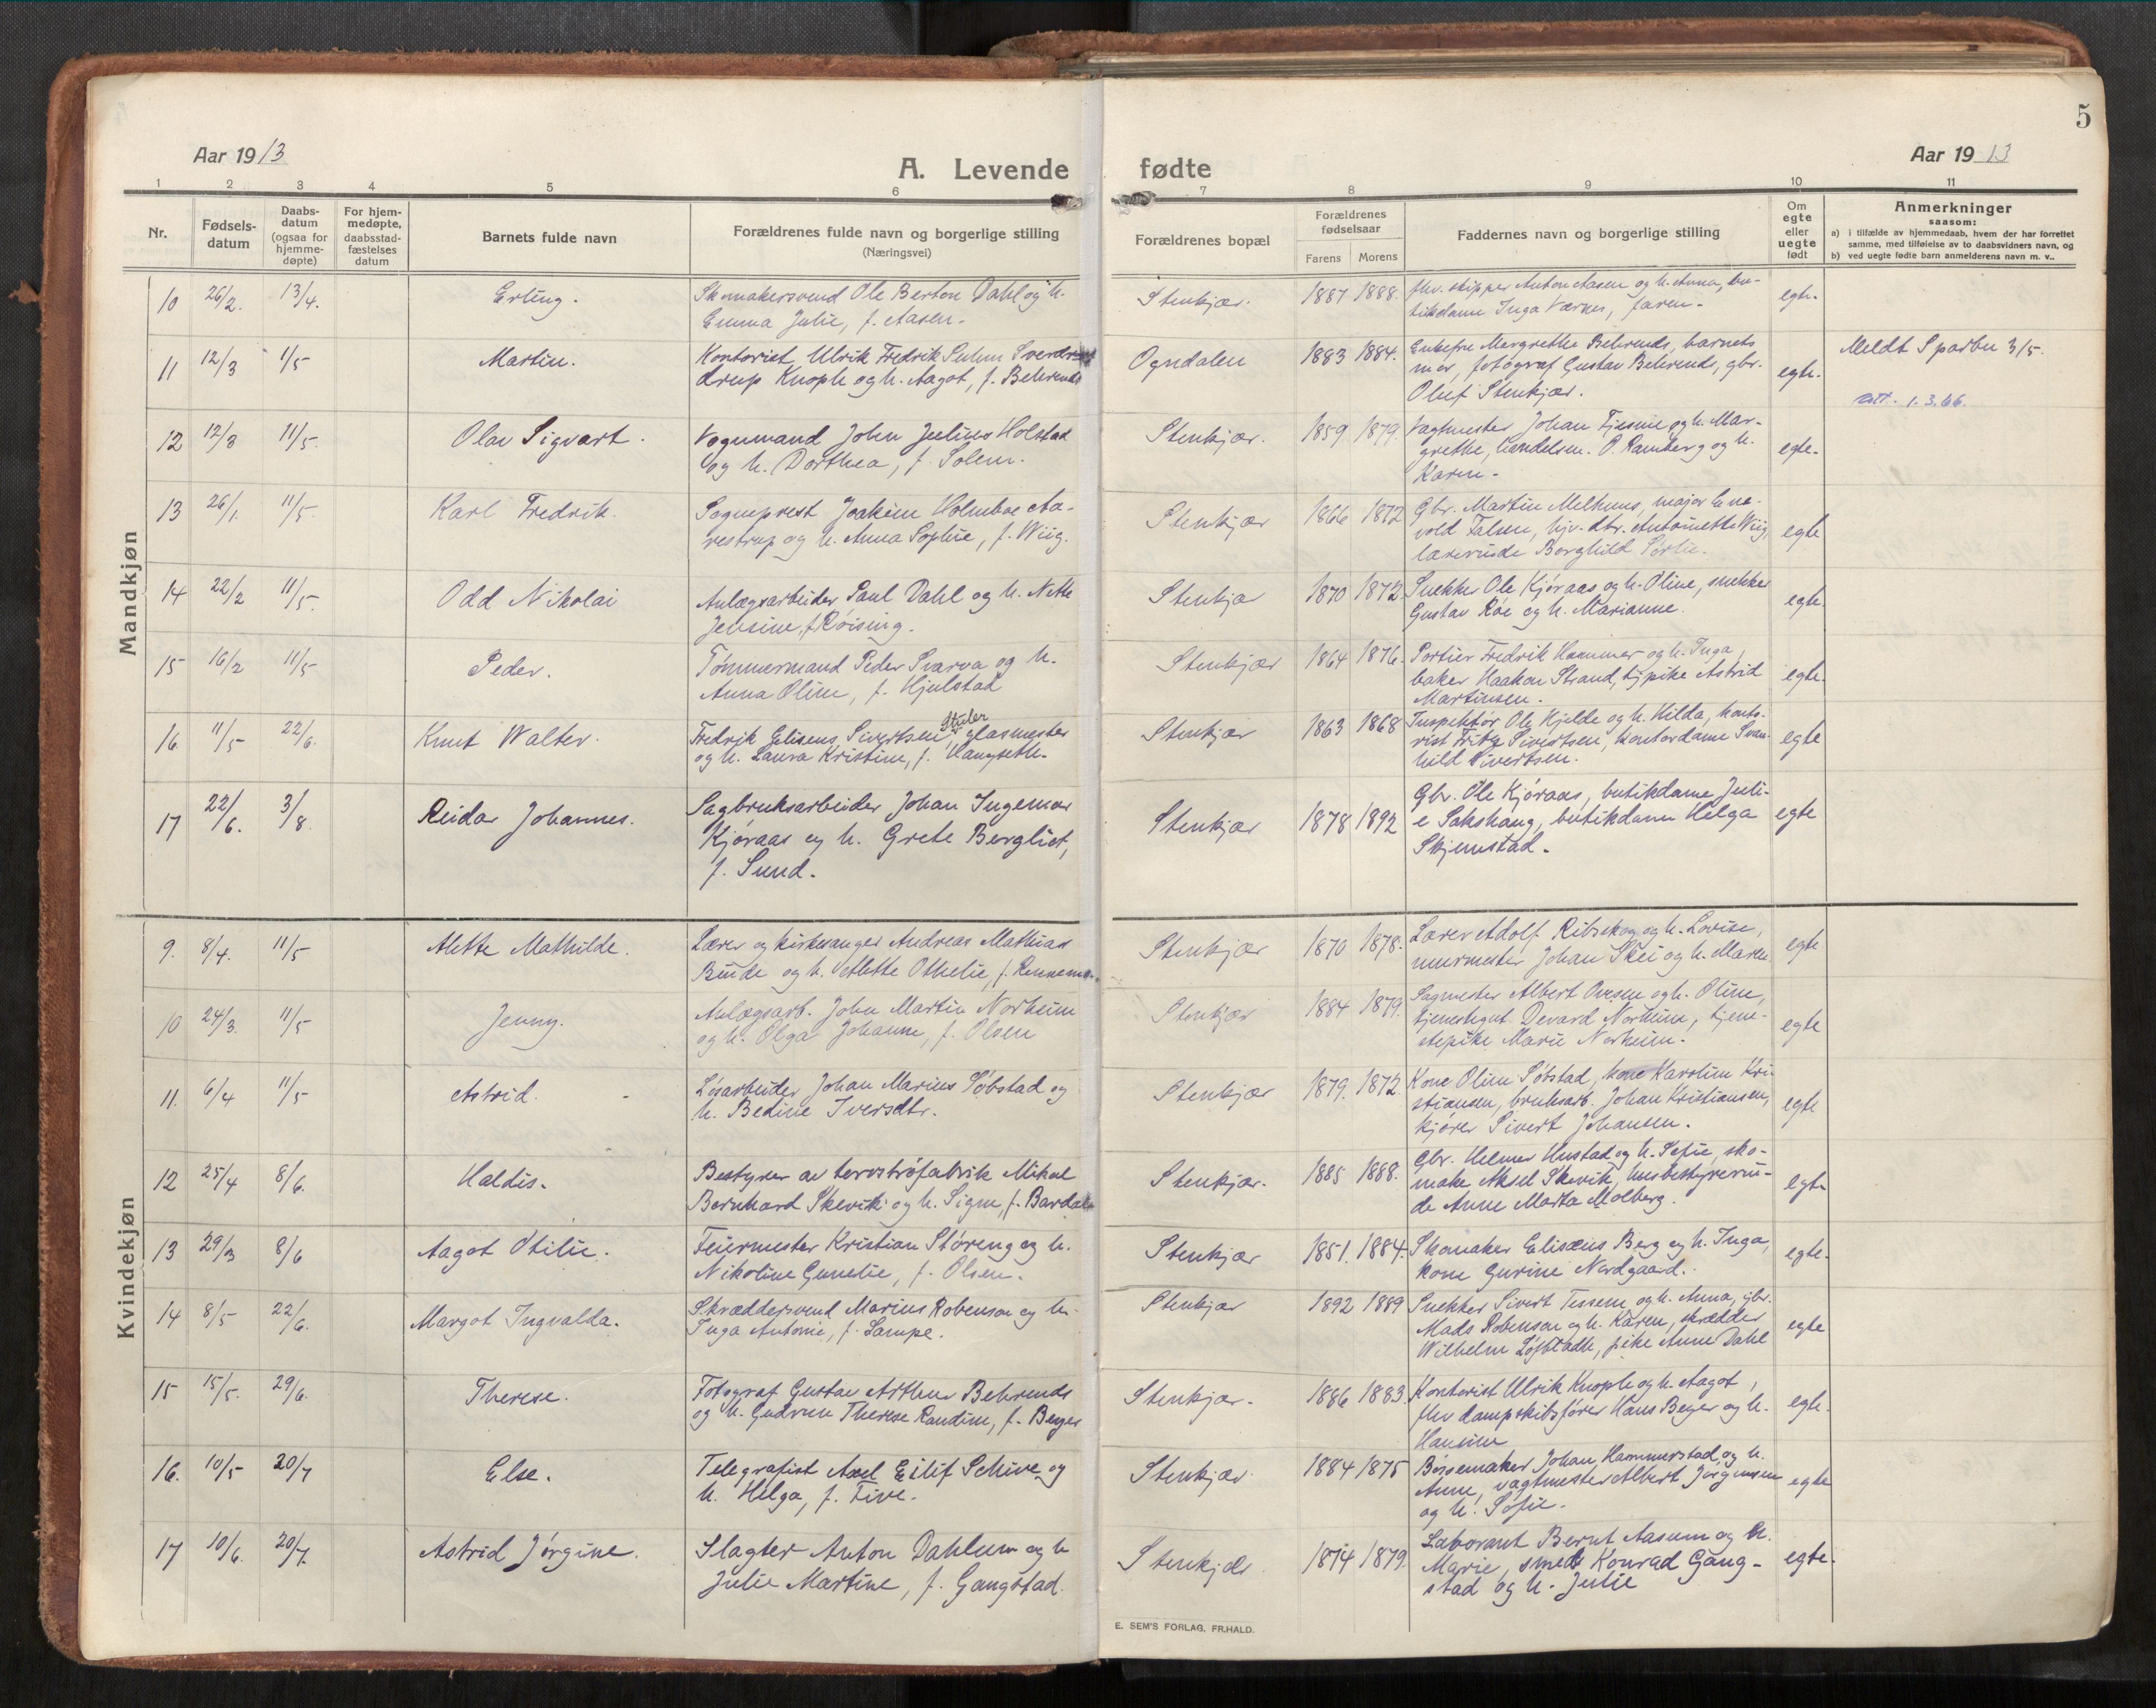 5
Aar 1913
A. Levende fødte
Aar 1913
1 2 3 4 5 6 7 8 9 10 11
Nr.
Fødselsdatum
Daabsdatum (ogsaa for hjemmedøpte)
For hjemmedøpte, daabsstadfæstelses datum
Barnets fulde navn
Forældrenes fulde navn og borgerlige stilling
(Næringsvei)
Forældrenes bopæl
Forældrenes fødselsaar
Farens Morens
Faddernes navn og borgerlige stilling
Om egte eller uegte født
Anmerkninger
saasom:
a) i tilfælde av hjemmedaab, hvem der har forrettet
samme, med tilføielse av to daabsvidners navn, og
b) ved uegte fødte barn anmelderens navn m. v..
Mandkjøn
10 26/2. 13/4. Erling. Skomakersvend Ole Berton Dahl og h.
Emma Julie, f. Aasen.
Stenkjær. 1887 1888. fhv. skipper Anton Aasen og h. Anna, bu-
tikdame Inga Værnes, faren.
egte.
11 12/3 1/5 Martin. Kontorist Ulrik Fredrik Suhm Sverdrup
drup Knoph og h. Aagot, f. Behrends
Ogndalen 1883 1884. Enkefru Margrethe Behrends, barnets
mor, fotograf Gustav Behrends, gbr.
Oluf Stenkjær.
egte.
Meldt Sparbu 3/5.
att. 1.3.66.
12 12/3 11/5. Olav Sigvart. Vognmand John Julius Holstad
og h. Dorthea, f. Solem.
Stenkjær. 1859 1879. Vagtmester Johan Fjesme og h. Mar-
grethe, handelsm. O. Ramberg og h.
Karen.
egte.
13 26/1. 11/5. Karl Fredrik. Sogneprest Joakim Holmboe Aa-
restrup og h. Anna Sophie, f. Wiig.
Stenkjær 1866 1872 Gbr. Martin Melhuus, major Ene-
vold Falsen, hjv. dtr. Antoinette Wiig,
lærerinde Borghild
egte
14 22/2 11/5. Odd Nikolai Anlægsarbeider Paul Dahl og h. Nette
Jensine, f. Røising.
Stenkjær 1870 1872. Snekker Ole Kjøraas og h. Oline, snekker
Gustav Roe og h. Marianne.
egte.
15 16/2 11/5 Peder. Tømmermand Peder Svarva og h.
Anna Oline, f. Hjulstad
Stenkjær 1864 1876. Portier Fredrik Hammer og h. Inga,
baker Haakon Strand, tj.pike Astrid
Martinsen.
egte.
16. 11/5 22/6. Knut Walter. Fredrik Elisens Sivertsen Stuler, glasmester
og h. Laura Kristine, f. Haugseth.
Stenkjær 1863 1868 Inspektør Ole Kjelde og h. Hilda, konto-
rist Fritz Sivertsen, kontordame Svan-
hild Sivertsen.
egte
17 22/6. 3/8. Reidar Johannes. Sagbruksarbeider Johan Ingemar
Kjøraas og h. Grete Bergliot,
f. Sund.
Stenkjær 1878 1892 Gbr. Ole Kjøraas, butikdame Juli-
e Sakshaug, butikdame Helga
Skjemstad.
egte
Kvindekjøn
9. 8/4. 11/5 Alette Mathilde. Lærer og kirkesanger Andreas Mathias
Binde og h. Alette Othelie, f.
Stenkjær 1870 1878. Lærer Adolf Ribskog og h. Lovise,
murmester Johan Skei og h. Maren
egte
10 24/3. 11/5 Jenny. Anlægsarb. John Martin Norheim
og h. Olga Johanne, f. Olsen
Stenkjær 1884 1879. Sagmester Albert Ovesen og h. Oline,
tjenestegut Devard Norheim, tjene-
stepike Marie Norheim.
egte
11. 6/4 11/5 Astrid. Løsarbeider Johan Marius Søbstad og
h. Bedine Iversdtr.
Stenkjær 1879. 1872. Kone Oline Søbstad, kone Karoline Kri-
stiansen, bruksarb. Johan Kristiansen,
kjører Sivert Johansen.
egte
12 25/4 8/6. Haldis. Bestyrer av torvstrøfabrik Mikal
Bernhard Skevik og h. Signe, f. Bardal
Stenkjær. 1885 1888. Gbr. Helmer Hustad og h. Sofie, sko-
make Aksel Skevik, husbestyrerin-
de Anne Marta Molberg.
egte
13 29/3 8/6 Aagot Otilie. Feiermester Kristian Støreng og h.
Nikoline Gunelie, f. Olsen.
Stenkjær 1851. 1884. Skomaker Elisæus Berg og h. Inga,
kone Gurine Nordgaard.
egte.
14 8/5 22/6. Margot Ingvalda. Skræddersvend Marius Robenson og h.
Inga Antonie, f. Lampe.
Stenkjær 1892 1889 Snekker Sivert Tessem og h. Anna, gbr.
Mads Robenson og h. Karen, skrædder
Wilhelm, pike Anne Dahl
egte
15 15/5. 29/6. Therese. Fotograf Gustav Arthur Behrends
og h. Gudrun Therese Randine, f. Beyer
Stenkjær. 1886 1883. Kontorist Ulrik Knoph og h. Aagot,
fhv dampskibsfører Hans Beyer og h.
Hansine
egte.
16. 10/5 20/7 Else. Telegrafist Axel Eilif Schive og
h. Helga, f. Five.
Stenkjær. 1884 1875 Børsemaker Johan Hammerstad og h.
Anne, vagtmester Albert Jørgensen
og h. Sofie.
egte
17 10/6. 20/7. Astrid Jørgine. Slagter Anton Dahlum og h
Julie Martine, f. Gangstad.
Stenkjær. 1874 1879. Laborant Bernt Aasum og h.
Marie, smed Konrad Gang-
stad og h. Julie
egte.
E. SEM'S FORLAG, FR.HALD.